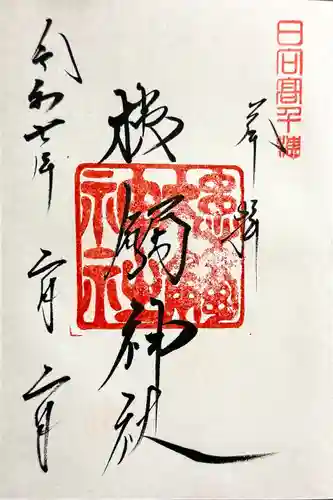 日向高千穂
奉拝
槵觸神社
令和七年二月二日